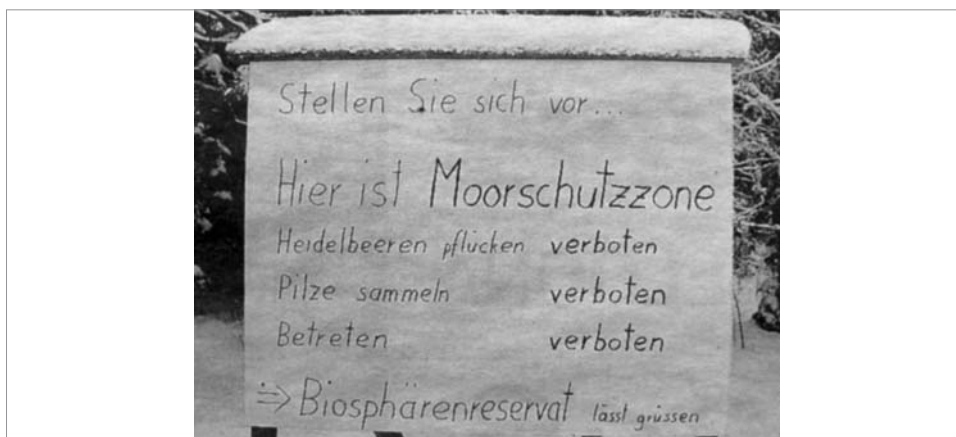 Stellen Sie sich vor...
Hier ist Moorschutzzone
Heidelbeeren pflücken verboten
Pilze sammeln verboten
Betreten verboten
⇒ Biosphärenreservat lässt grüssen